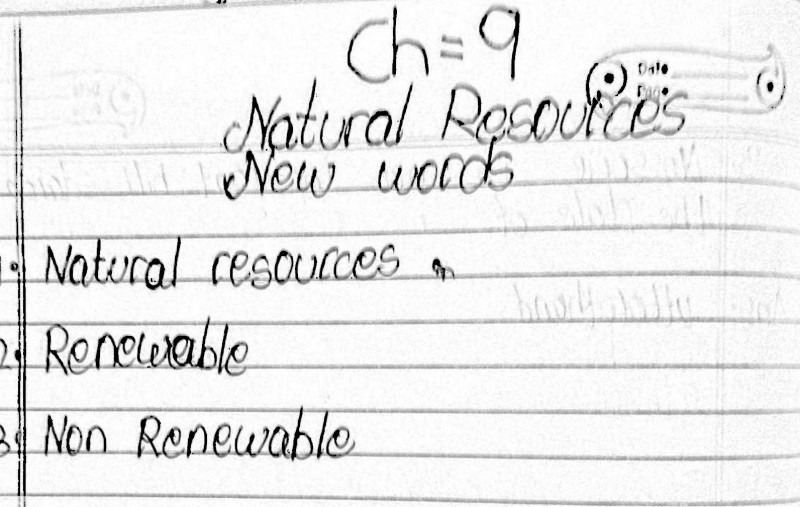 Ch = 9
Date
Page
Natural Resources
New words
1. Natural resources
2. Renewable
3. Non Renewable